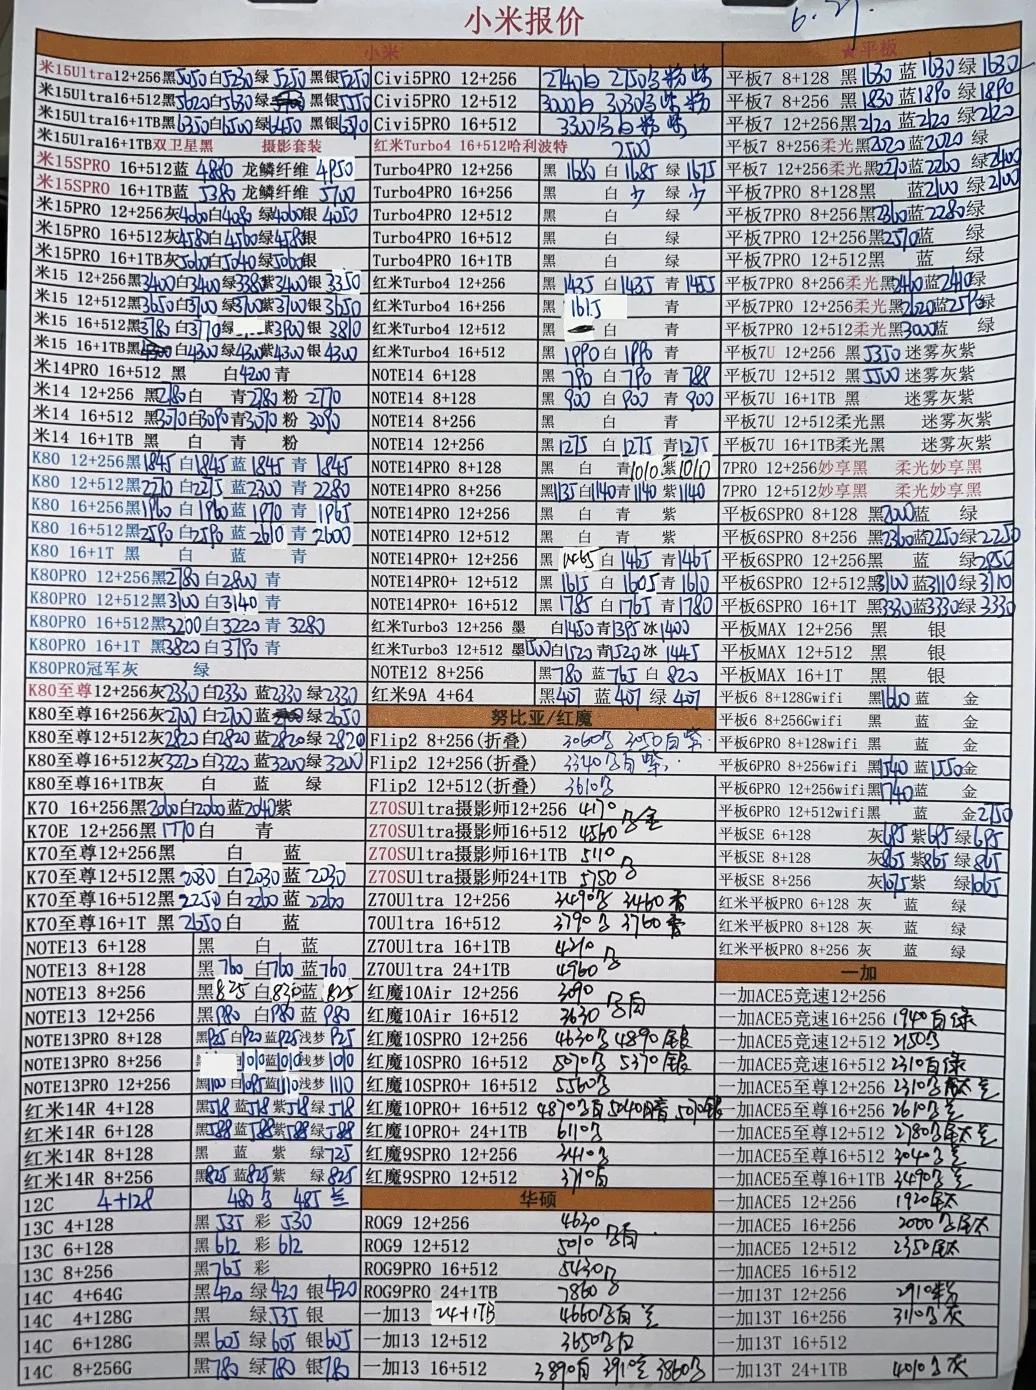 小米报价
6.27.
小米
米15Ultra12+256黑5050白5230绿5250黑银5250
米15Ultra16+512黑5620白5630绿 黑银5550
米15Ultra16+1TB黑6350白6500绿6450 黑银6590
米15Ulra16+1TB双卫星黑 摄影套装
米15SPRO 16+512蓝 4880 龙鳞纤维 4950
米15SPRO 16+1TB蓝 5380 龙鳞纤维 5700
米15PRO 12+256灰4060白4080绿4060银 4050
米15PRO 16+512灰4580白4560绿4580银
米15PRO 16+1TB灰5060白5040绿5060银
米15 12+256黑3400白3400绿3385紫3400银 3350
米15 12+512黑3650白3700绿3700紫3700银 3650
米15 16+512黑3780白3770绿 紫3900银 3810
米15 16+1TB黑 白4300绿4300紫4300银 4300
米14PRO 16+512 黑 白4200青
米14 12+256 黑2780白 青2780粉 2770
米14 16+512 黑3070白3090青3070粉 3090
米14 16+1TB 黑 白 青 粉
K80 12+256黑1845白1845蓝1845青 1845
K80 12+512黑2270白2275蓝2300青 2280
K80 16+256黑1960白1960蓝1970青 1965
K80 16+512黑2590白2590蓝2610青 2600
K80 16+1T 黑 白 蓝 青
K80PRO 12+256黑2780白2800 青
K80PRO 12+512黑3100白3140 青
K80PRO 16+512黑3200白3220 青 3280
K80PRO 16+1T 黑3820白3790 青
K80PRO冠军灰 绿
K80至尊12+256灰2330白2330 蓝2330绿2330
K80至尊16+256灰2700白2700蓝 绿2650
K80至尊12+512灰2820白2820蓝2820绿2820
K80至尊16+512灰3220白3220蓝3200绿3200
K80至尊16+1TB灰 白 蓝 绿
K70 16+256黑2060白2060蓝2040紫
K70E 12+256黑1770白 青
K70至尊12+256黑 白 蓝
K70至尊12+512黑 2030 白2030 蓝2030
K70至尊16+512黑 2250 白2260 蓝2260
K70至尊16+1T 黑 2650白 蓝
NOTE13 6+128 黑 白 蓝
NOTE13 8+128 黑760 白760 蓝760
NOTE13 8+256 黑825 白830蓝825
NOTE13 12+256 黑980 白980 蓝980
NOTE13PRO 8+128 黑925白920蓝925浅梦925
NOTE13PRO 8+256 黑 白1010蓝1010浅梦1010
NOTE13PRO 12+256 黑1100白1095蓝1110浅梦1110
红米14R 4+128 黑518蓝518紫518绿518
红米14R 6+128 黑588蓝588紫588绿588
红米14R 8+128 黑 蓝 紫 绿725
红米14R 8+256 黑825蓝825紫 绿825
12C 4+128 480黑 485蓝
13C 4+128 黑 535 彩 530
13C 6+128 黑 612 彩 612
13C 8+256 黑765 彩
14C 4+64G 黑420 绿420 银420
14C 4+128G 黑 绿535 银
14C 6+128G 黑605 绿605 银605
14C 8+256G 黑780 绿780 银780
Civi5PRO 12+256 2740白 2750黑粉紫
Civi5PRO 12+512 3000白 3030黑紫粉
Civi5PRO 16+512 3300黑白粉紫
红米Turbo4 16+512哈利波特 2500
Turbo4PRO 12+256 黑1680 白1685 绿1675
Turbo4PRO 16+256 黑 白 少 绿 少
Turbo4PRO 12+512 黑 白 绿
Turbo4PRO 16+512 黑 白 绿
Turbo4PRO 16+1TB 黑 白 绿
红米Turbo4 12+256 黑1435 白1435 青1455
红米Turbo4 16+256 黑 1615 青
红米Turbo4 12+512 黑 白 青
红米Turbo4 16+512 黑 1990 白1990 青
NOTE14 6+128 黑790 白790 青788
NOTE14 8+128 黑900 白900 青900
NOTE14 8+256 黑 白 青
NOTE14 12+256 黑1275 白1275 青1275
NOTE14PRO 8+128 黑 白 青1010紫1010
NOTE14PRO 8+256 黑1135白1140青1140紫1140
NOTE14PRO 12+256 黑 白 青 紫
NOTE14PRO 12+512 黑 白 青 紫
NOTE14PRO+ 12+256 黑1465白1465青1465
NOTE14PRO+ 12+512 黑1615 白1605青1610
NOTE14PRO+ 16+512 黑1785 白1765青1780
红米Turbo3 12+256 墨 白1450青1395冰1400
红米Turbo3 12+512 墨1500白1520青1520冰1445
NOTE12 8+256 黑780 蓝765 白820
红米9A 4+64 黑407 蓝407 绿407
努比亚/红魔
Flip2 8+256(折叠) 3060黑 3050白紫
Flip2 12+256(折叠) 3340黑白紫
Flip2 12+512(折叠) 3610黑
Z70SUltra摄影师12+256 4170
Z70SUltra摄影师16+512 4560 黑金
Z70SUltra摄影师16+1TB 5110
Z70SUltra摄影师24+1TB 5750 黑
Z70Ultra 12+256 3490黑 3460青
70Ultra 16+512 3790黑 3760青
Z70Ultra 16+1TB 4210
Z70Ultra 24+1TB 4960 黑
红魔10Air 12+256 3090
红魔10Air 16+512 3630 黑白
红魔10SPRO 12+256 4630黑 4890银
红魔10SPRO 16+512 5070黑 5370银
红魔10SPRO+ 16+512 5560黑
红魔10PRO+ 16+512 4870黑白 5040暗 5070银
红魔10PRO+ 24+1TB 6110黑
红魔9SPRO 12+256 3410黑
红魔9SPRO 16+512 3710白
华硕
ROG9 12+256 4630
ROG9 12+512 5010 黑白
ROG9PRO 16+512 5430黑
ROG9PRO 24+1TB 7860
一加13 24+1TB 4660黑白蓝
一加13 12+512 3650黑白
一加13 16+512 3890白 3910蓝 3860黑
★平板
平板7 8+128 黑1630 蓝1630 绿1630
平板7 8+256 黑1830 蓝1890 绿1890
平板7 12+256 黑2120 蓝2120 绿2120
平板7 8+256柔光黑2020蓝2020 绿
平板7 12+256柔光黑2270蓝2260 绿2400
平板7PRO 8+128黑 蓝2100绿2100
平板7PRO 8+256黑2360蓝2280绿
平板7PRO 12+256黑2570蓝 绿
平板7PRO 12+512黑 蓝 绿
平板7PRO 8+256柔光黑2460蓝2410绿
平板7PRO 12+256柔光黑2620蓝2590绿
平板7PRO 12+512柔光黑3000蓝 绿
平板7U 12+256 黑5350 迷雾灰紫
平板7U 12+512 黑5500 迷雾灰紫
平板7U 16+1TB 黑 迷雾灰紫
平板7U 12+512柔光黑 迷雾灰紫
平板7U 16+1TB柔光黑 迷雾灰紫
7PRO 12+256妙享黑 柔光妙享黑
7PRO 12+512妙享黑 柔光妙享黑
平板6SPRO 8+128 黑2000蓝 绿
平板6SPRO 8+256 黑2360蓝2250绿2250
平板6SPRO 12+256黑 蓝 绿2950
平板6SPRO 12+512黑3100蓝3110绿3110
平板6SPRO 16+1T 黑3330蓝3330绿3330
平板MAX 12+256 黑 银
平板MAX 12+512 黑 银
平板MAX 16+1T 黑 银
平板6 8+128Gwifi 黑1600蓝 金
平板6 8+256Gwifi 黑 蓝 金
平板6PRO 8+128wifi 黑 蓝 金
平板6PRO 8+256wifi 黑1540蓝1550金
平板6PRO 12+256wifi黑1740蓝 金
平板6PRO 12+512wifi黑 蓝 金2150
平板SE 6+128 灰695 紫695 绿695
平板SE 8+128 灰865 紫865 绿865
平板SE 8+256 灰1075 紫 绿1065
红米平板PRO 6+128 灰 蓝 绿
红米平板PRO 8+128 灰 蓝 绿
红米平板PRO 8+256 灰 蓝 绿
一加
一加ACE5竞速12+256
一加ACE5竞速16+256 1940白绿
一加ACE5竞速12+512 2150黑
一加ACE5竞速16+512 2310白绿
一加ACE5至尊12+256 2310黑钛蓝
一加ACE5至尊16+256 2610黑蓝
一加ACE5至尊12+512 2780黑钛蓝
一加ACE5至尊16+512 3040黑蓝
一加ACE5至尊16+1TB 3490黑蓝
一加ACE5 12+256 1920钛
一加ACE5 16+256 2000黑钛
一加ACE5 12+512 2350钛
一加ACE5 16+512
一加13T 12+256 2910粉
一加13T 16+256 3110黑灰
一加13T 16+512
一加13T 24+1TB 4010黑灰